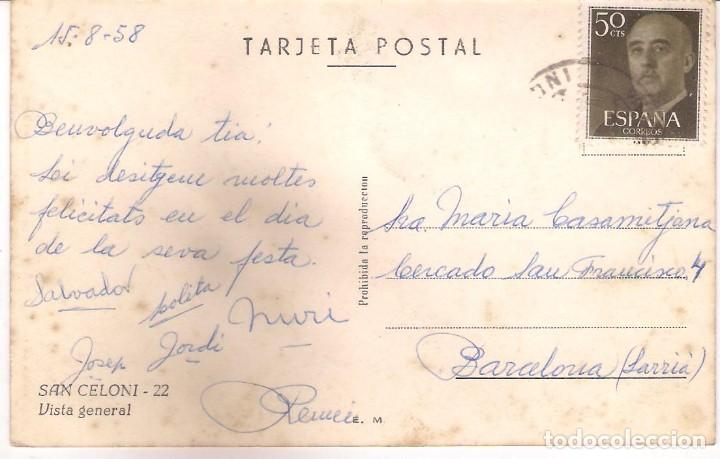 15-8-58
TARJETA POSTAL
50
CTS
ESPAÑA
CORREOS
ONI
Benvolguda tia:
Li desitgem moltes
felicitats en el dia
de la seva festa.
Salvador
Lolita
Nuri
Josep Jordi
Remei
SAN CELONI - 22
Vista general
E. M.
Prohibida la reproduccion
Sra Maria Casamitjana
Cercado San Francisco 4
Barcelona (Sarriá)
todocoleccion.net